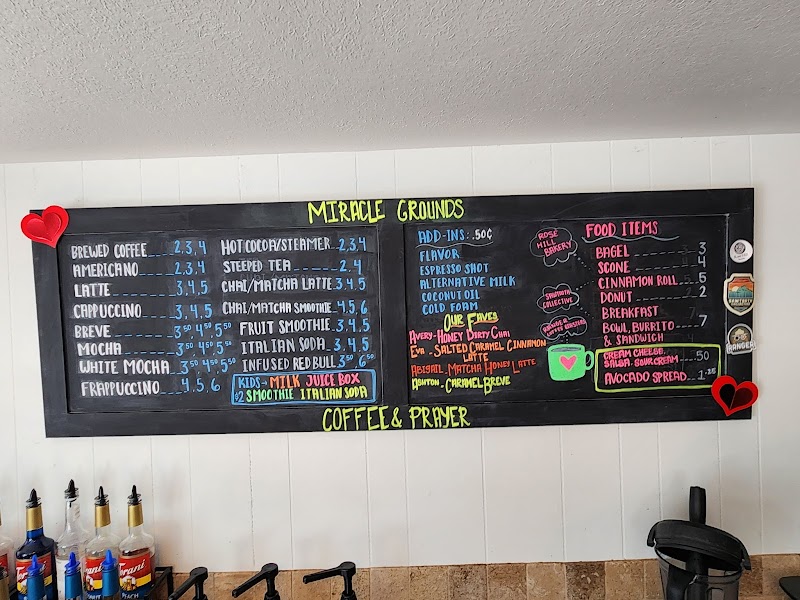 MIRACLE GROUNDS
BREWED COFFEE 2,3,4
AMERICANO 2,3,4
LATTE 3,4,5
CAPPUCCINO 3,4,5
BREVE 3⁵⁰ 4⁵⁰ 5⁵⁰
MOCHA 3⁵⁰ 4⁵⁰ 5⁵⁰
WHITE MOCHA 3⁵⁰ 4⁵⁰ 5⁵⁰
FRAPPUCCINO 4,5,6
HOT COCOA/STEAMER 2,3,4
STEEPED TEA 2,4
CHAI/MATCHA LATTE 3,4,5
CHAI/MATCHA SMOOTHIE 4,5,6
FRUIT SMOOTHIE 3,4,5
ITALIAN SODA 3,4,5
INFUSED RED BULL 3⁵⁰ 6⁵⁰
KIDS- MILK JUICE BOX
$2 SMOOTHIE ITALIAN SODA
ADD-INS: .50¢
FLAVOR
ESPRESSO SHOT
ALTERNATIVE MILK
COCONUT OIL
COLD FOAM
OUR FAVES
AVERY-HONEY DIRTY CHAI
EVA - SALTED CARAMEL CINNAMON
LATTE
ABIGAIL-MATCHA HONEY LATTE
ASHTON-CARAMEL BREVE
ROSE
HILL
BAKERY
COLLECTIVE
FOOD ITEMS
BAGEL 3
SCONE 4
CINNAMON ROLL 5
DONUT 2
BREAKFAST
BOWL, BURRITO 7
& SANDWICH
CREAM CHEESE, .50
SALSA, SOUR CREAM
AVOCADO SPREAD 1.25
RANGER
COFFEE & PRAYER
TORANI
PEACH